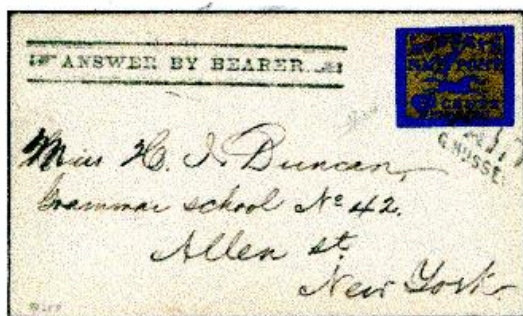 ANSWER BY BEARER.
Miss H. I. Duncan,
Grammar school No 42.
Allen st.
New York.
G. HUSSE